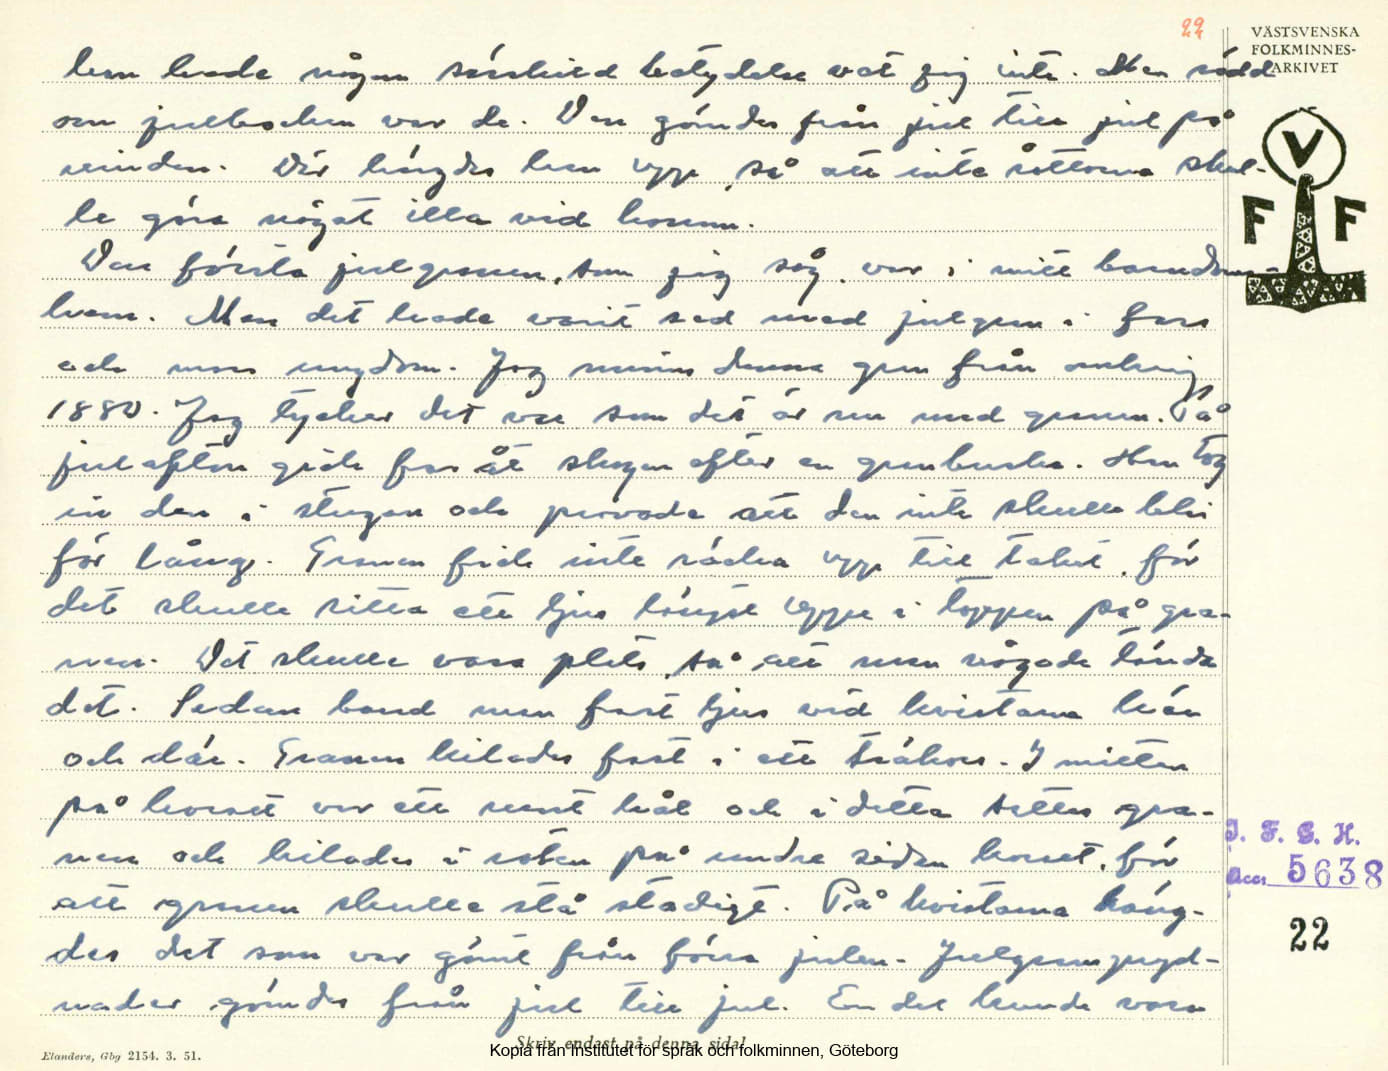 22
VÄSTSVENSKA
FOLKMINNES-
ARKIVET
hon hade någon särskild betydelse vet jag inte. Men rädd
om julbocken var de. Den gömdes från jul till jul på
vinden. Där hängdes hon upp, så att inte råttorna skul-
le göra något illa vid honom.
Den första julgranen, som jag såg, var i mitt barndoms-
hem. Men det hade varit sed med julgran i fars
och mors ungdom. Jag minns denna gran från omkring
1880. Jag tycker det var som det är nu med granen. På
julafton gick far åt skogen efter en granbuske. Han tog
in den i stugan och provade att den inte skulle bli
för lång. Granen fick inte räcka upp till taket, för
det skulle sitta ett ljus längst uppe i toppen på gra-
nen. Det skulle vara plats, så att man vågade tända
det. Sedan band man fast ljus vid kvistarna här
och där. Granen kilades fast i ett träkors. I mitten
på korset var ett runt hål och i detta sattes gra-
nen och kilades i roten på undre sidan korset, för
att granen skulle stå stadigt. På kvistarna häng-
des det som var gömt från förra julen. Julgranspryd-
nader gömdes från jul till jul. En del kunde vara
V
F F
I. F. G. H.
Acc. 5638
22
Skriv endast på denna sida!
Elanders, Gbg 2154. 3. 51.
Kopia från Institutet för språk och folkminnen, Göteborg